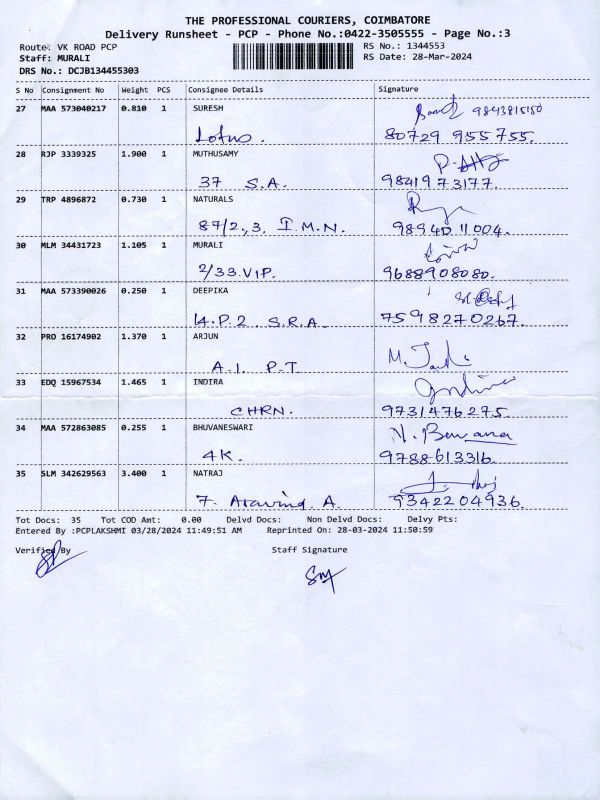 THE PROFESSIONAL COURIERS, COIMBATORE
Delivery Runsheet - PCP - Phone No.:0422-3505555 - Page No.:3
Route: VK ROAD PCP RS No.: 1344553
Staff: MURALI RS Date: 28-Mar-2024
DRS No.: DCJB134455303
S No Consignment No Weight PCS Consignee Details Signature
27 MAA 573040217 0.810 1 SURESH 9843815150
Lotus. 80729 955755.
28 RJP 3339325 1.900 1 MUTHUSAMY
37 S.A. 9841973177.
29 TRP 4896872 0.730 1 NATURALS
87/2,3, I.M.N. 98940 11004.
30 MLM 34431723 1.105 1 MURALI
2/33.VIP. 9688908080.
31 MAA 573390026 0.250 1 DEEPIKA
14.P.2 S.R.A. 7598270267.
32 PRO 16174902 1.370 1 ARJUN
A.I. P.T
33 EDQ 15967534 1.465 1 INDIRA
CHRN. 9731476275.
34 MAA 572863085 0.255 1 BHUVANESWARI N. Bewana
4K. 9788613316.
35 SLM 342629563 3.400 1 NATRAJ
7. Aravind. A. 9342204936.
Tot Docs: 35 Tot COD Amt: 0.00 Delvd Docs: Non Delvd Docs: Delvy Pts:
Entered By :PCPLAKSHMI 03/28/2024 11:49:51 AM Reprinted On: 28-03-2024 11:50:59
Verified By Staff Signature